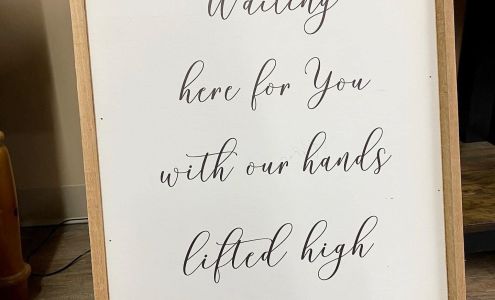 Waiting
here for You
with our hands
lifted high